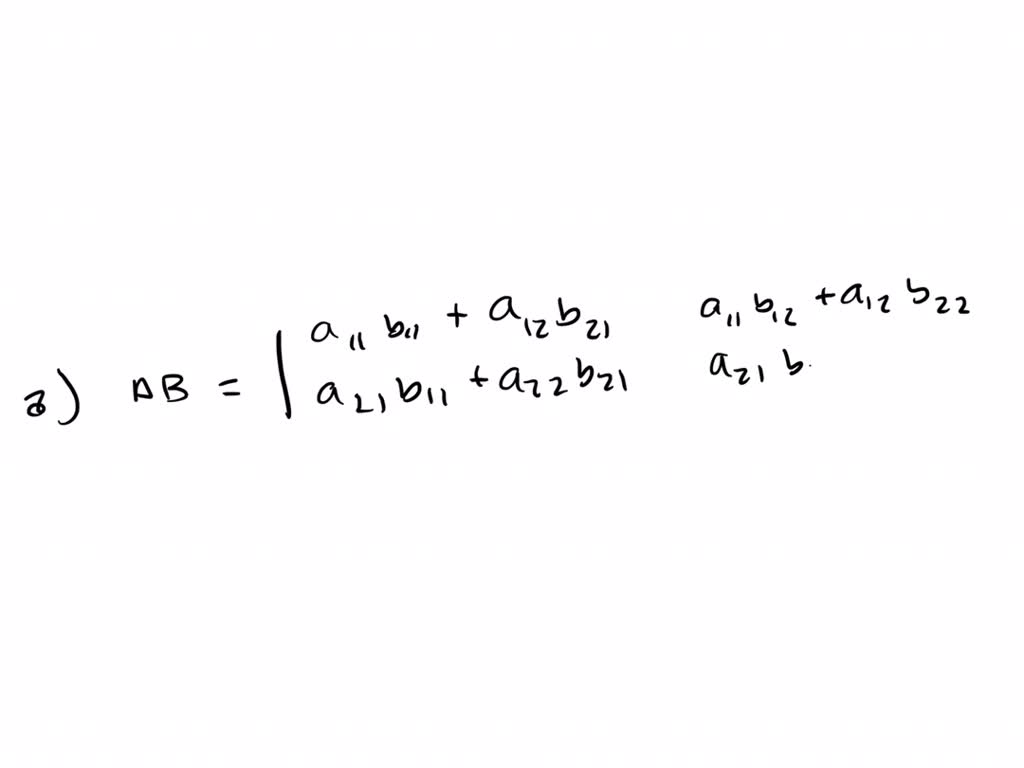 a₁₁ b₁₁ + a₁₂ b₂₁ a₁₁ b₁₂ + a₁₂ b₂₂
a) AB = | a₂₁ b₁₁ + a₂₂ b₂₁ a₂₁ b